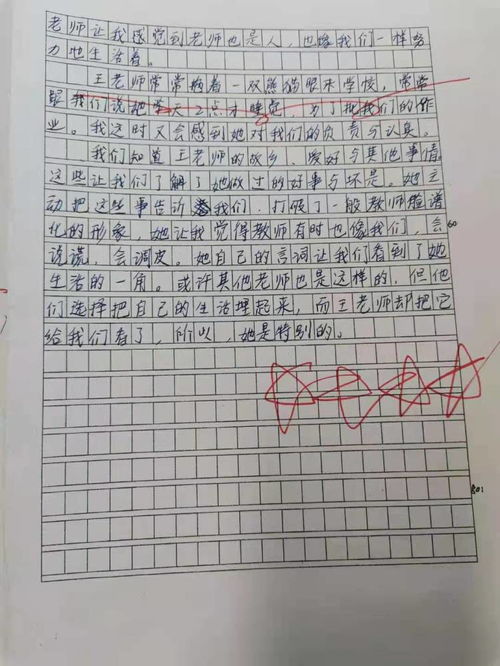 老师让我感觉到老师也是人，也像我们一样努
力地生活着。
王老师常常拖着一双熊猫眼来学校，常常
跟我们说她今天2点才睡觉，为了批我们的作
业。我这时又会感到她对我们的负责与认真。
我们知道王老师的故乡、爱好与其他事情。
这些让我们了解了她做过的好事与坏是。她主
动把这些事告诉我们，打破了一般教师脸谱
化的形象，她让我觉得教师有时也像我们，会
600
说谎，会调皮。她自己的言词让我们看到了她
生活的一角。或许其他老师也是这样的，但他
们选择把自己的生活埋起来，而王老师却把它
给我们看了，所以，她是特别的。